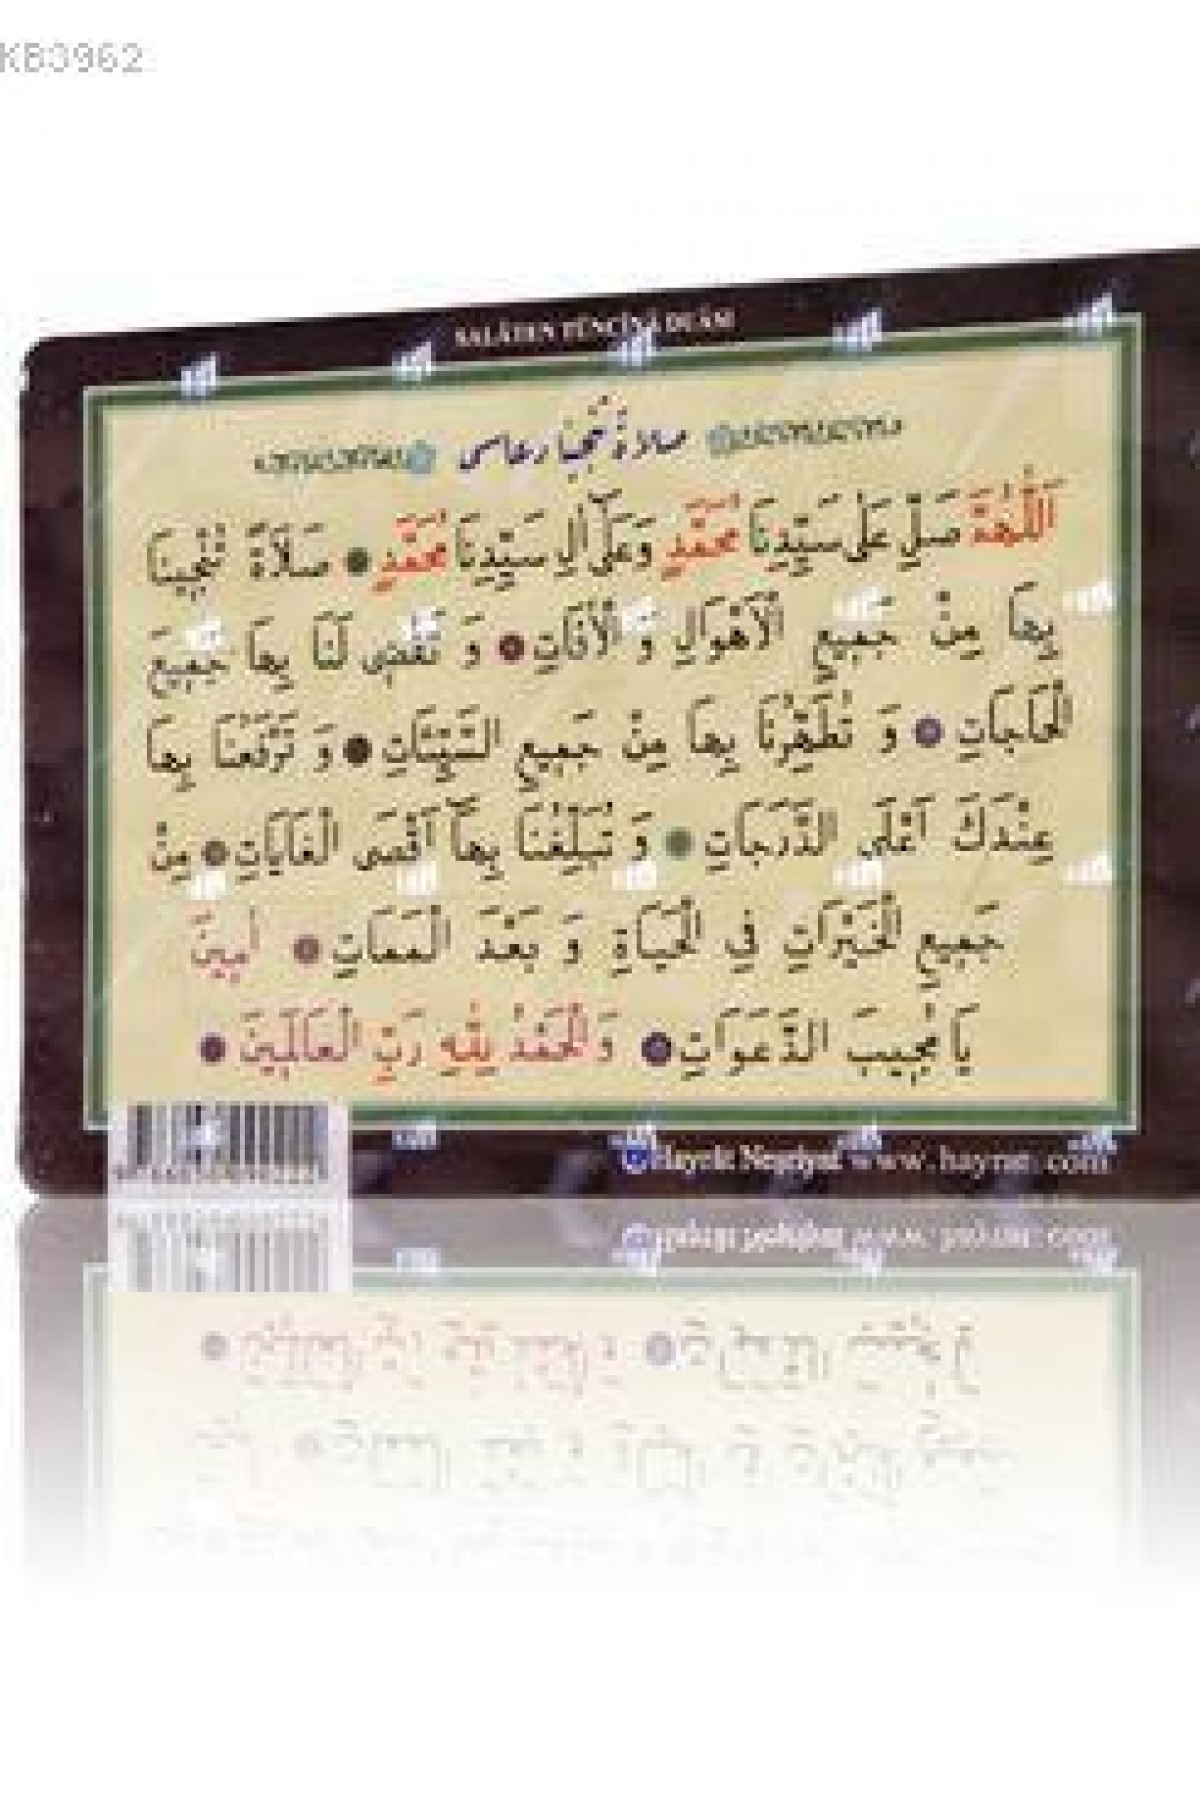 KB3962
SALÂTEN TÜNCÎNÂ DUÂSI
صلاة تنجينا دعاسى
اَللّٰهُمَّ صَلِّ عَلٰى سَيِّدِنَا مُحَمَّدٍ وَعَلٰٓى اٰلِ سَيِّدِنَا مُحَمَّدٍ ۞ صَلَاةً تُنْجِينَا
بِهَا مِنْ جَمِيعِ الْاَهْوَالِ وَ الْاٰفَاتِ ۞ وَ تَقْضِى لَنَا بِهَا جَمِيعَ
الْحَاجَاتِ ۞ وَ تُطَهِّرُنَا بِهَا مِنْ جَمِيعِ السَّيِّئَاتِ ۞ وَ تَرْفَعُنَا بِهَا
عِنْدَكَ اَعْلَى الدَّرَجَاتِ ۞ وَ تُبَلِّغُنَا بِهَٓا اَقْصَى الْغَايَاتِ ۞ مِنْ
جَمِيعِ الْخَيْرَاتِ فِي الْحَيَاةِ وَ بَعْدَ الْمَمَاتِ ۞ اٰمِينَ
يَا مُجِيبَ الدَّعَوَاتِ ۞ وَالْحَمْدُ لِلّٰهِ رَبِّ الْعَالَمِينَ ۞
Hayrât Neşriyat www.hayrat.com